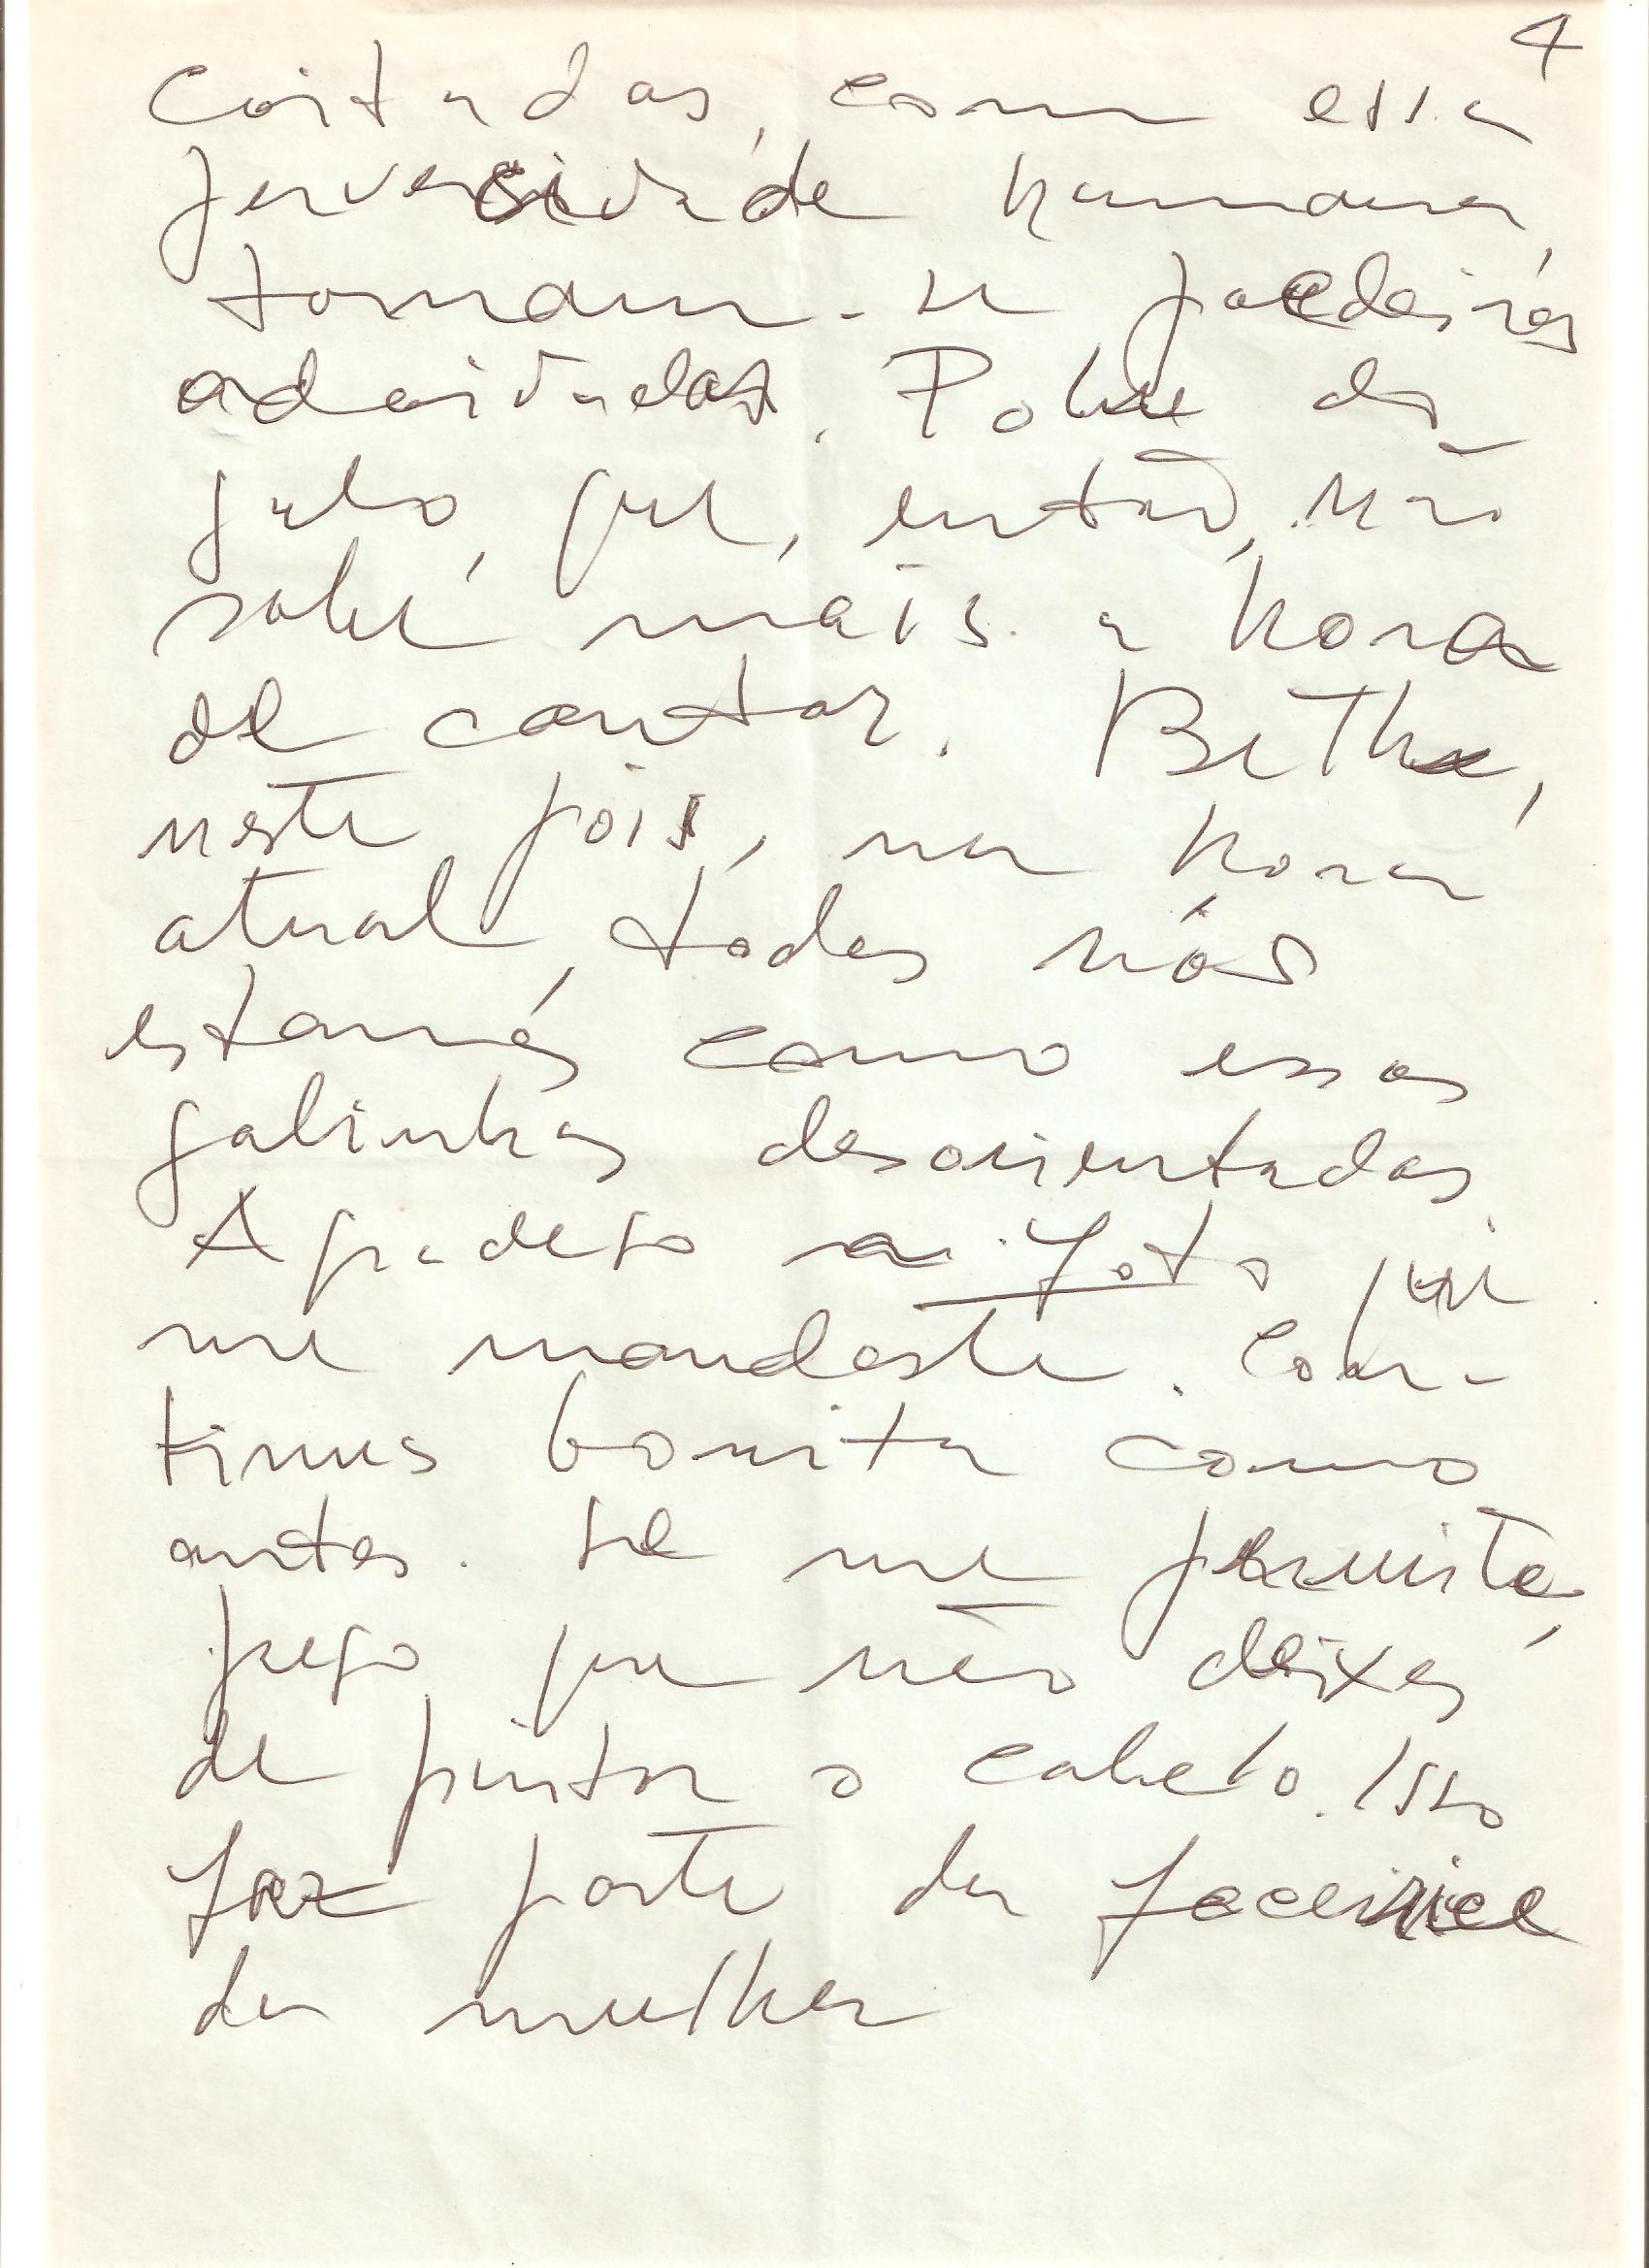 4
coitadas, com essa
perversidade humana,
tornam-se poedeiras
adoidadas. Pobre do
galo, que, então, não
sabe mais a hora
de cantar. Bethe,
neste pois, na hora
atual, todos nós
estamos como essas
galinhas desorientadas.
Agradeço a foto que
me mandaste. Con-
tinuas bonita como
antes. Se me permite,
peço que não deixes
de pintar o cabelo. Isso
faz parte da faceirice
da mulher